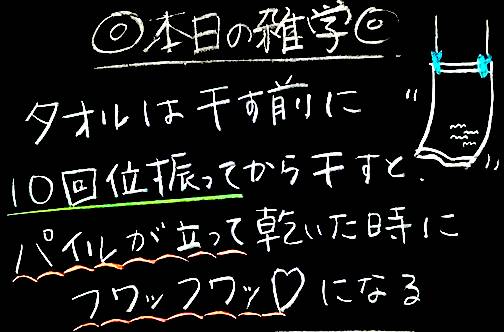 ◎本日の雑学◎
タオルは干す前に
10回位振ってから干すと、
パイルが立って乾いた時に
フワッフワッ♡になる